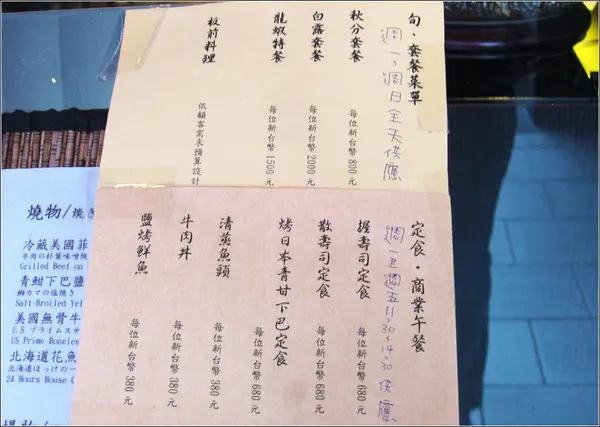 旬．套餐菜單
週一～週日全天供應
秋分套餐 每位新台幣 800 元
白露套餐 每位新台幣 2000 元
龍蝦特餐 每位新台幣 1500 元
板前料理 依顧客需求預算設計
定食．商業午餐
週一至週五11:30~14:30供應
握壽司定食 每位新台幣 680 元
散壽司定食 每位新台幣 680 元
烤日本青甘下巴定食 每位新台幣 680 元
清蒸魚頭 每位新台幣 380 元
牛肉丼 每位新台幣 380 元
鹽烤鮮魚 每位新台幣 380 元
燒物/燒き
冷藏美國菲
牛肉の朴葉味噌燒
Grilled Beef on
青魽下巴鹽
鰤カマの塩焼き
Salt-Broiled Yel
美國無骨牛
U.S プライムステ
US Prime Boneles
北海道花魚
北海道ほっけの一
24 Hours Moose (